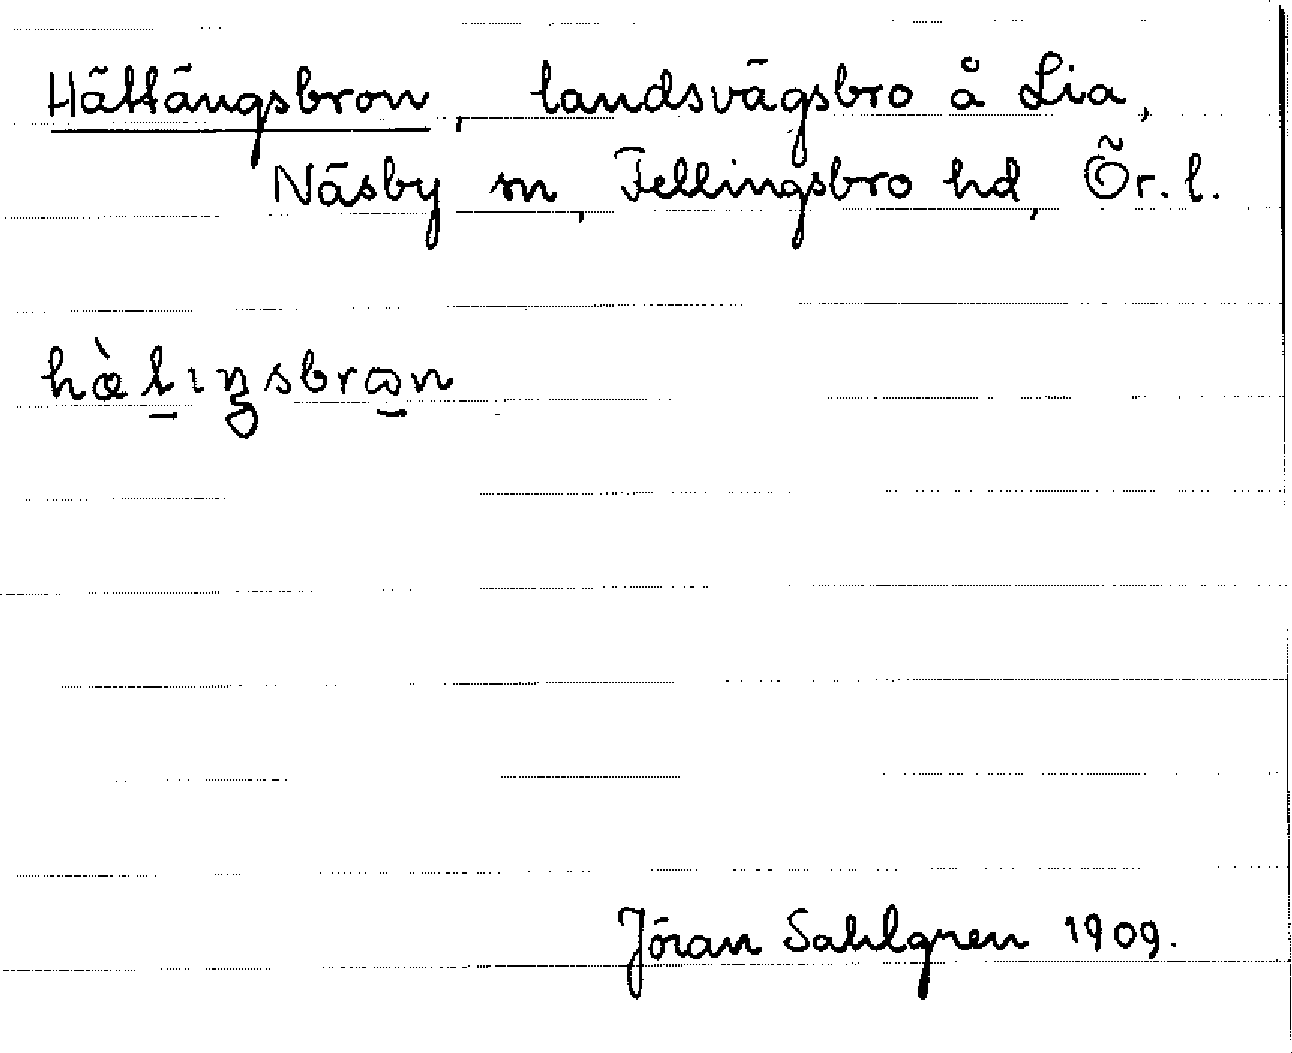 Hättängsbron, landsvägsbro å Lia,
Näsby sn, Fellingsbro hd, Ör. l.
hæ̀l̠ıŋsbrω̠n
Jöran Sahlgren 1909.